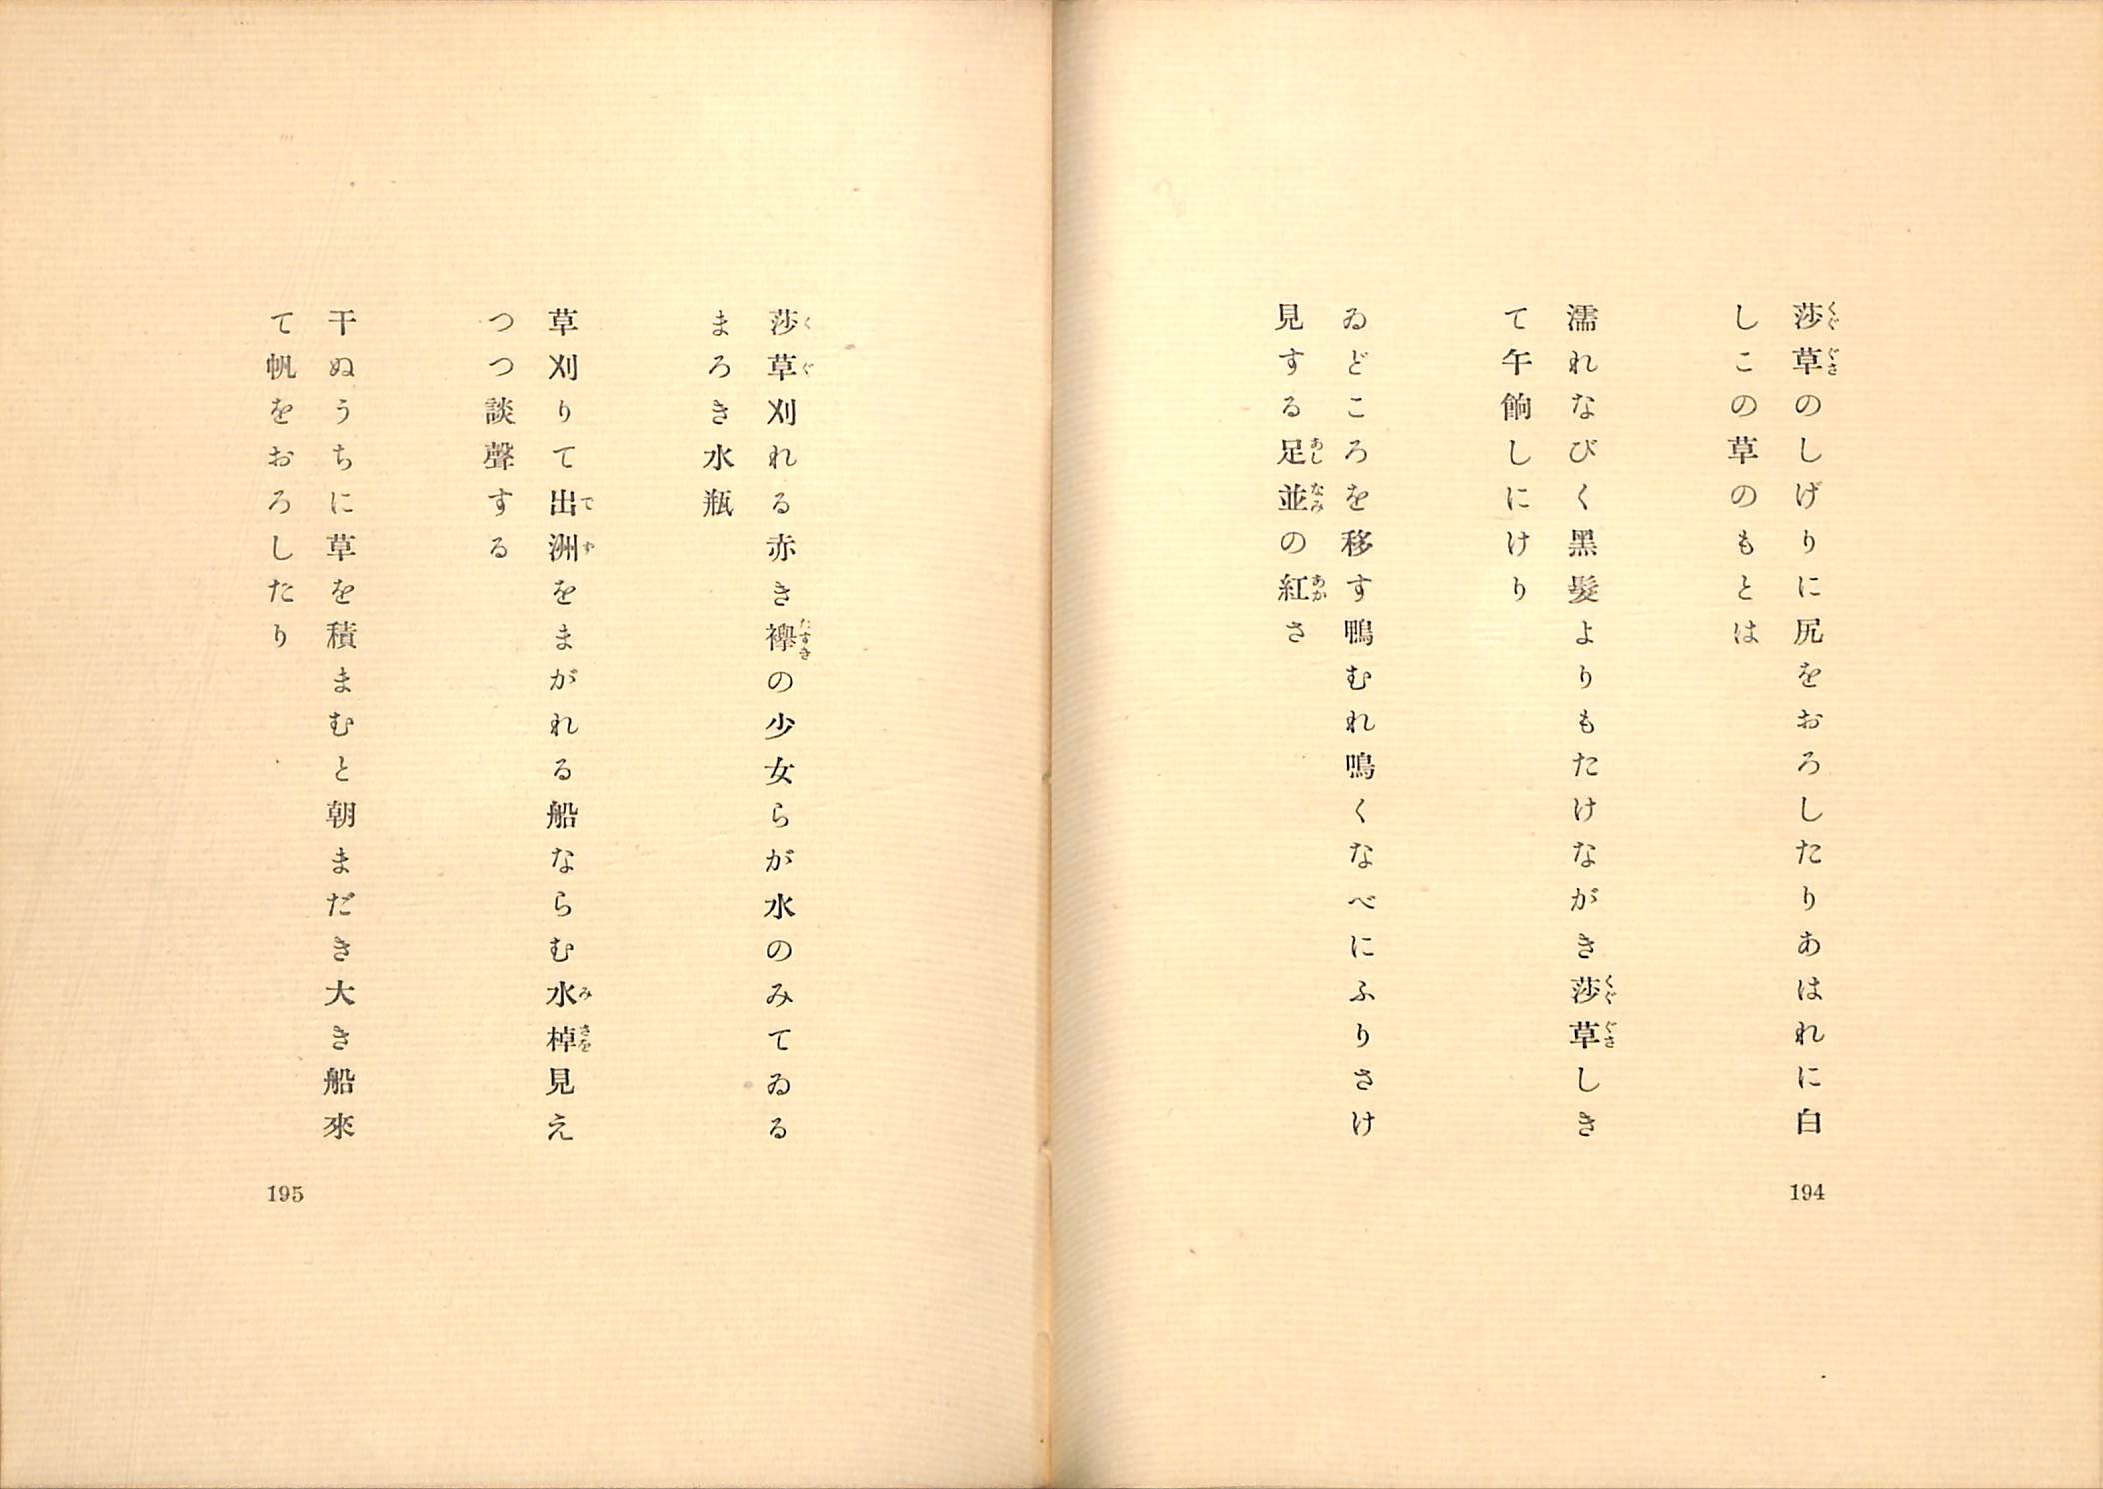 莎草のしげりに尻をおろしたりあはれに白
しこの草のもとは
濡れなびく黑髮よりもたけながき莎草しき
て午餉しにけり
ゐどころを移す鴨むれ鳴くなべにふりさけ
見する足並の紅さ
194
莎草刈れる赤き襷の少女らが水のみてゐる
まろき水瓶
草刈りて出洲をまがれる船ならむ水棹見え
つつ談聲する
干ぬうちに草を積まむと朝まだき大き船來
て帆をおろしたり
195